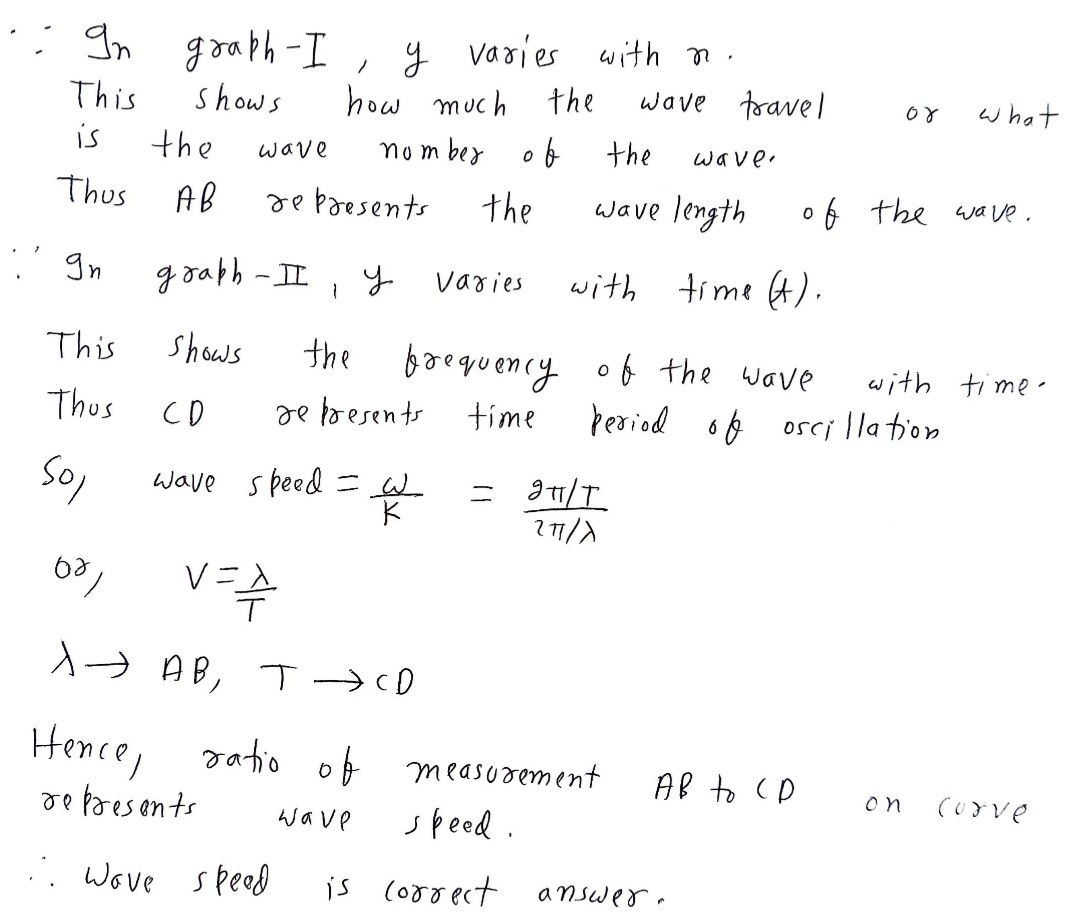 ∵ In graph-I, y varies with x.
This shows how much the wave travel or what
is the wave number of the wave.
Thus AB represents the wave length of the wave.
∵ In graph-II, y varies with time (t).
This shows the frequency of the wave with time.
Thus CD represents time period of oscillation
So, wave speed = ω/K = (2π/T)/(2π/λ)
or, V = λ/T
λ → AB, T → CD
Hence, ratio of measurement AB to CD on curve
represents wave speed.
∴ Wave speed is correct answer.